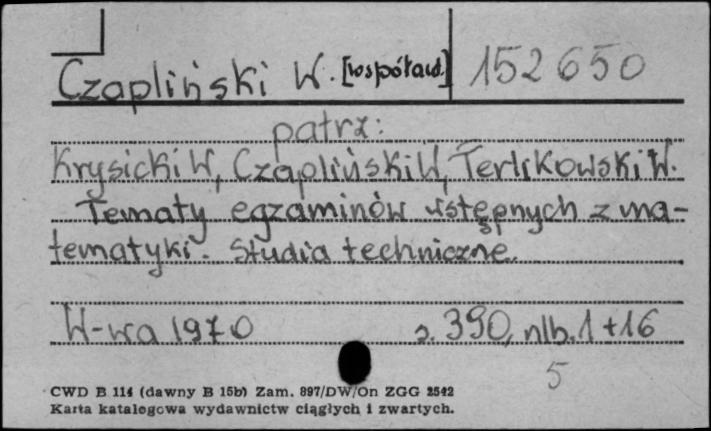 Czapliński W. [współaut.] 152650
patrz:
Krysicki W, Czapliński W, Terlikowski W.
Tematy egzaminów wstępnych z ma-
tematyki. Studia techniczne.
W-wa 1970 s. 390, nlb. 1 + 16
5
CWD B 114 (dawny B 15b) Zam. 897/DW/On ZGG 2542
Karta katalogowa wydawnictw ciągłych i zwartych.